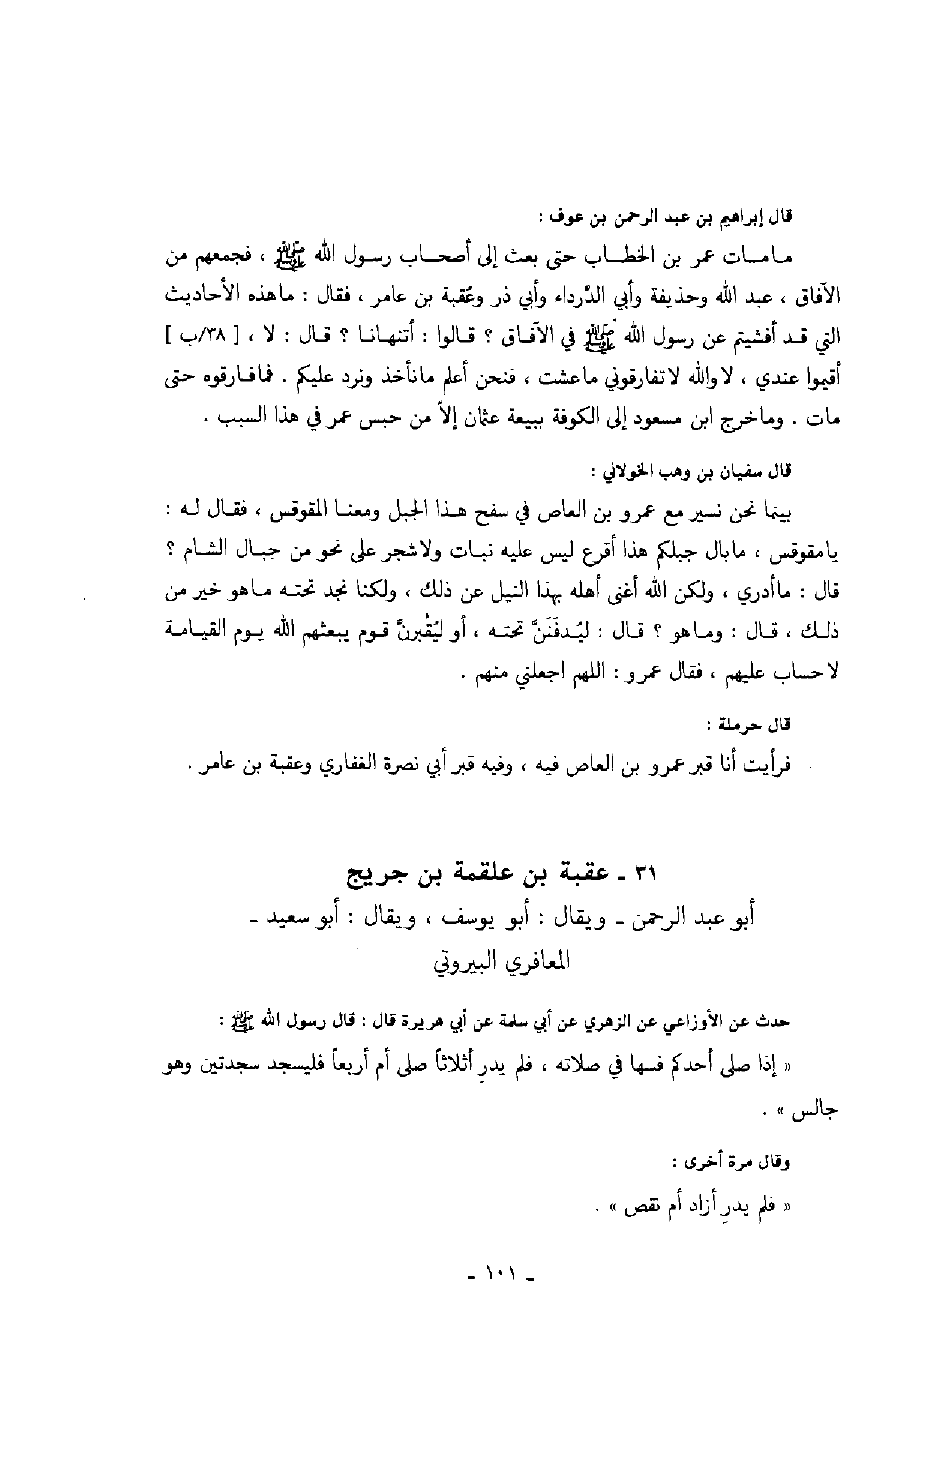 قال إبراهيم بن عبد الرحمن بن عوف :
مامات عمر بن الخطاب حتى بعث إلى أصحاب رسول الله ﷺ ، فجمعهم من
الآفاق ، عبد الله وحذيفة وأبي الدَّرداء وأبي ذر وعُقبة بن عامر ، فقال : ماهذه الأحاديث
التي قد أفشيتم عن رسول الله ﷺ في الآفاق ؟ قالوا : أتنهانا ؟ قال : لا ، [ ٣٨/ب ]
أقيموا عندي ، لاوالله لاتفارقوني ماعشت ، فنحن أعلم مانأخذ ونرد عليكم . فمافارقوه حتى
مات . وماخرج ابن مسعود إلى الكوفة ببيعة عثمان إلاّ من حبس عمر في هذا السبب .
قال سفيان بن وهب الخولاني :
بينما نحن نسير مع عمرو بن العاص في سفح هذا الجبل ومعنا المقوقس ، فقال له :
يامقوقس ، مابال جبلكم هذا أقرع ليس عليه نبات ولاشجر على نحو من جبال الشام ؟
قال : ماأدري ، ولكن الله أغنى أهله بهذا النيل عن ذلك ، ولكنا نجد تحته ماهو خير من
ذلك ، قال : وماهو ؟ قال : ليُدفَنَنَّ تحته ، أو ليُقْبرنَّ قوم يبعثهم الله يوم القيامة
لاحساب عليهم ، فقال عمرو : اللهم اجعلني منهم .
قال حرملة :
فرأيت أنا قبر عمرو بن العاص فيه ، وفيه قبر أبي نصرة الغفاري وعقبة بن عامر .
٣١ ـ عقبة بن علقمة بن جريج
أبو عبد الرحمن ـ ويقال : أبو يوسف ، ويقال : أبو سعيد ـ
المعافري البيروتي
حدث عن الأوزاعي عن الزهري عن أبي سلمة عن أبي هريرة قال : قال رسول الله ﷺ :
« إذا صلى أحدكم فسها في صلاته ، فلم يدرِ أثلاثاً صلى أم أربعاً فليسجد سجدتين وهو
جالس » .
وقال مرة أخرى :
« فلم يدرِ أزاد أم نقص » .
ـ ١٠١ ـ